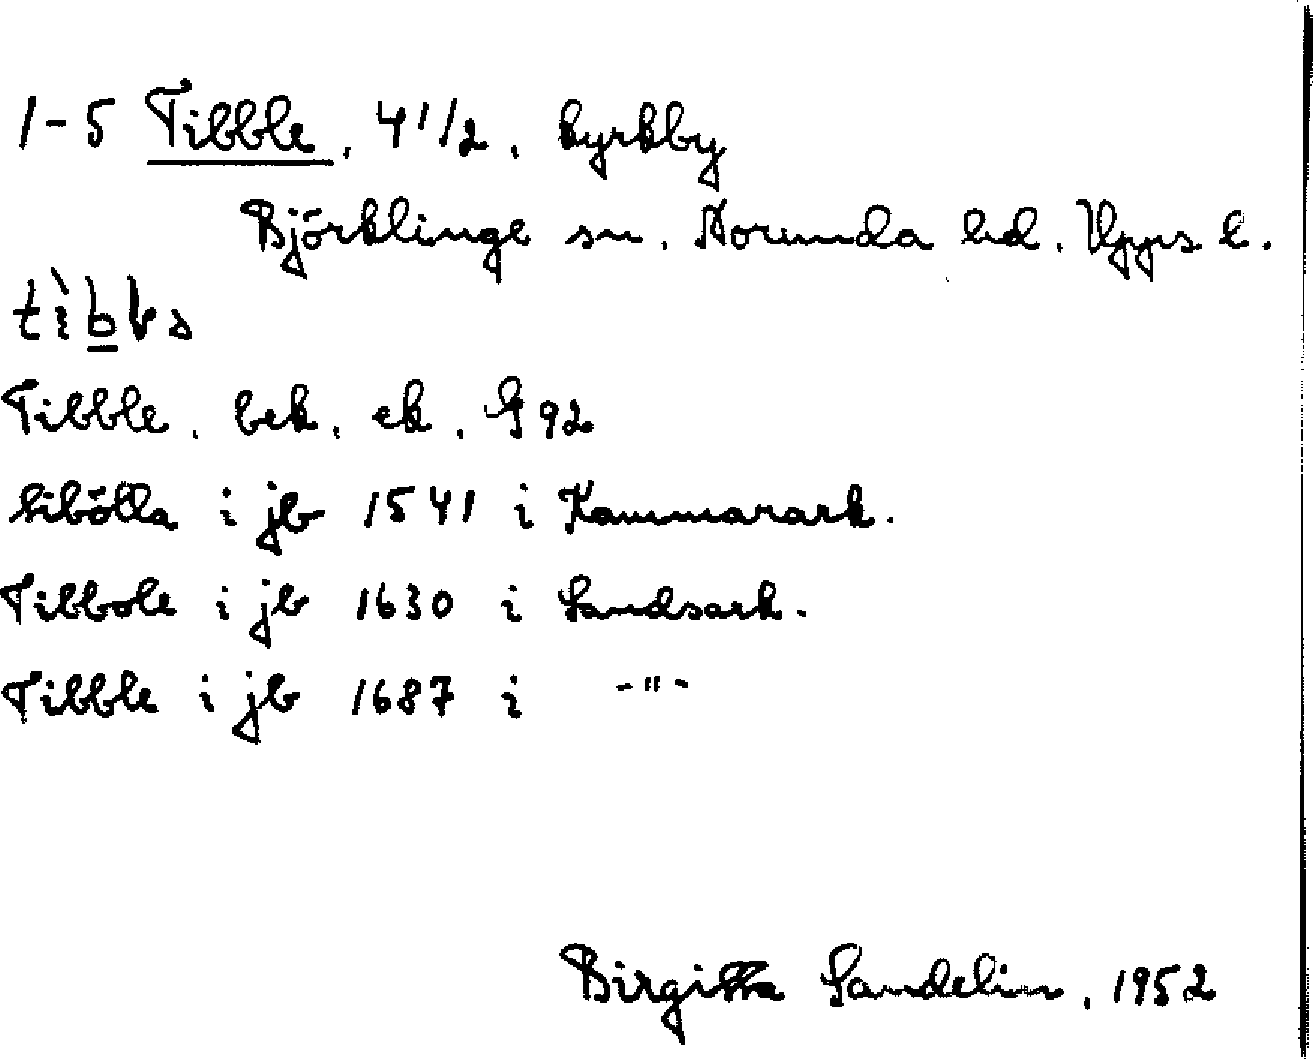 1-5 Tibble, 4 1/2, kyrkby
Björklinge sn, Norunda hd. Upps l.
tìb
Tibble, bek, ek, G 92
i jb 1541 i Kammarark.
Tibbole i jb 1630 i Landsark.
Tibble i jb 1687 i -"-
Birgitta Sandelin, 1952